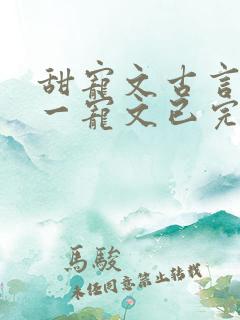 甜寵文古言
一寵文已完
馬駿
未任同意禁止转载